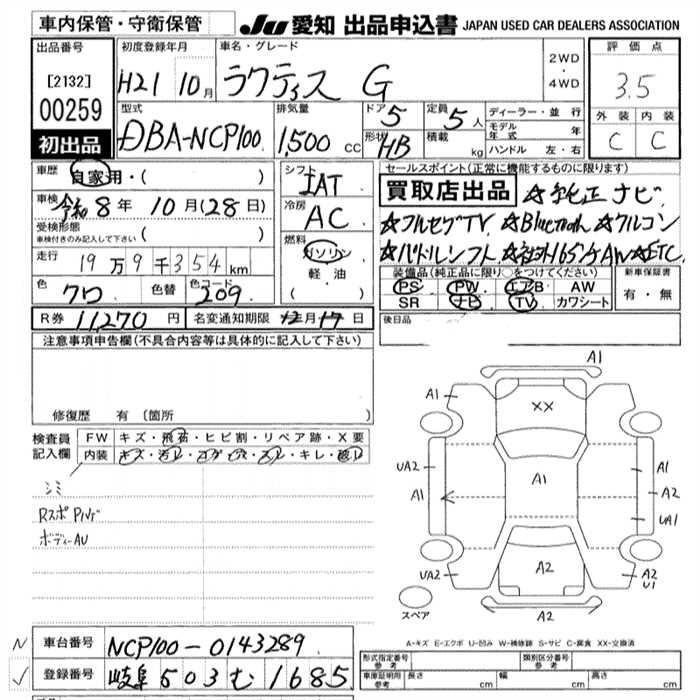 車内保管・守衛保管
JU 愛知 出品申込書 JAPAN USED CAR DEALERS ASSOCIATION
出品番号 初度登録年月 車名・グレード 2WD・4WD 評価点
[2132] H21 10月 ラクティス G 3.5
00259
型式 排気量 ドア 5 定員 5人 ディーラー・並行 外装 内装
初出品 DBA-NCP100 1,500 cc 形状 HB 積載 kg モデル年式 年 C C
ハンドル 左・右
車歴 自家用・( ) シフト IAT セールスポイント(正常に機能するものに限ります)
車検 令和8年 10月(28日) 買取店出品 ☆純正ナビ
受検形態 ( ) 冷房 AC ☆フルセグTV ☆Bluetooth ☆フルコン
車検付きのみ記入して下さい
走行 19万9千354km 燃料 ガソリン ☆パドルシフト ☆社外165インチAW☆ETC
軽・油
( )
装備品(純正品に限り○をつけてください) 新車保証書
色 クロ 色替 色コード 209 PS PW エアB AW 有・無
SR ナビ TV カワシート
R券 11270円 名変通知期限 12月17日 後日品
注意事項申告欄(不具合内容等は具体的に記入して下さい)
修復歴 有 (箇所
検査員記入欄 FW キズ・飛石・ヒビ割・リペア跡・X要
内装 キズ・汚レ・コゲ・穴・スレ・キレ・破レ
シミ
RスポPハゲ
ボディーAU
A1
A1
XX
UA2 A1 A1
A1 A2
UA1
UA2 A2 A2
U1
スペア A2
A-キズ E-エクボ U-凹み W-補修跡 S-サビ C-腐食 XX-交換済
N 車台番号 NCP100-0143289
✓ 登録番号 岐阜503む1685
形式指定番号 参考 類別区分番号 参考
車庫証明用 参考 長さ cm 幅 cm 高さ cm